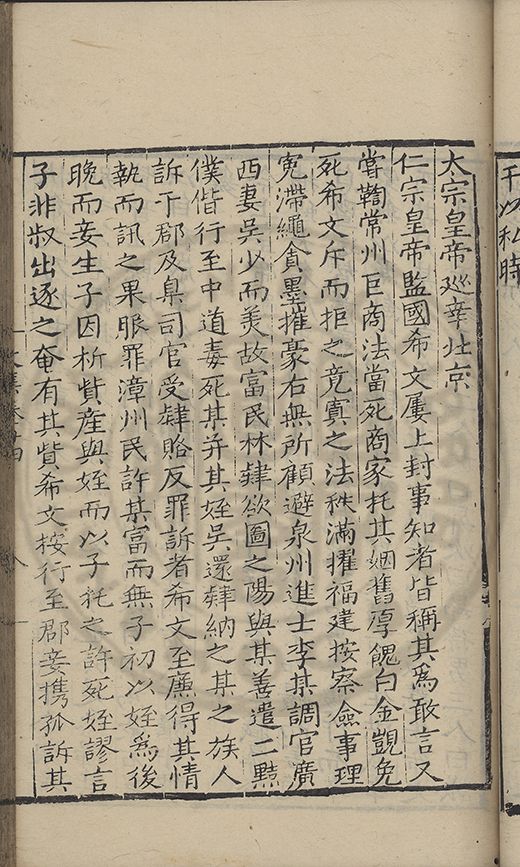 干以私時
太宗皇帝廵幸北京
仁宗皇帝監國希文屢上封事知者皆稱其爲敢言又
嘗鞫常州巨商法當死商家托其姻舊厚餽白金覬免
死希文斥而拒之竟寘之法秩滿擢福建按察僉事理
寃滯繩貪墨摧豪右無所顧避泉州進士李某調官廣
西妻吳少而美故富民林肆欲圖之陽與某善遣二黠
僕偕行至中道毒死某并其姪吳還肆納之某之族人
訴于郡及臬司官受肆賂反罪訴者希文至廉得其情
執而訊之果服罪漳州民許某富而無子初以姪爲後
晚而妾生子因析貲產與姪而以子托之許死姪謬言
子非叔出逐之奄有其貲希文按行至郡妾携孤訴其